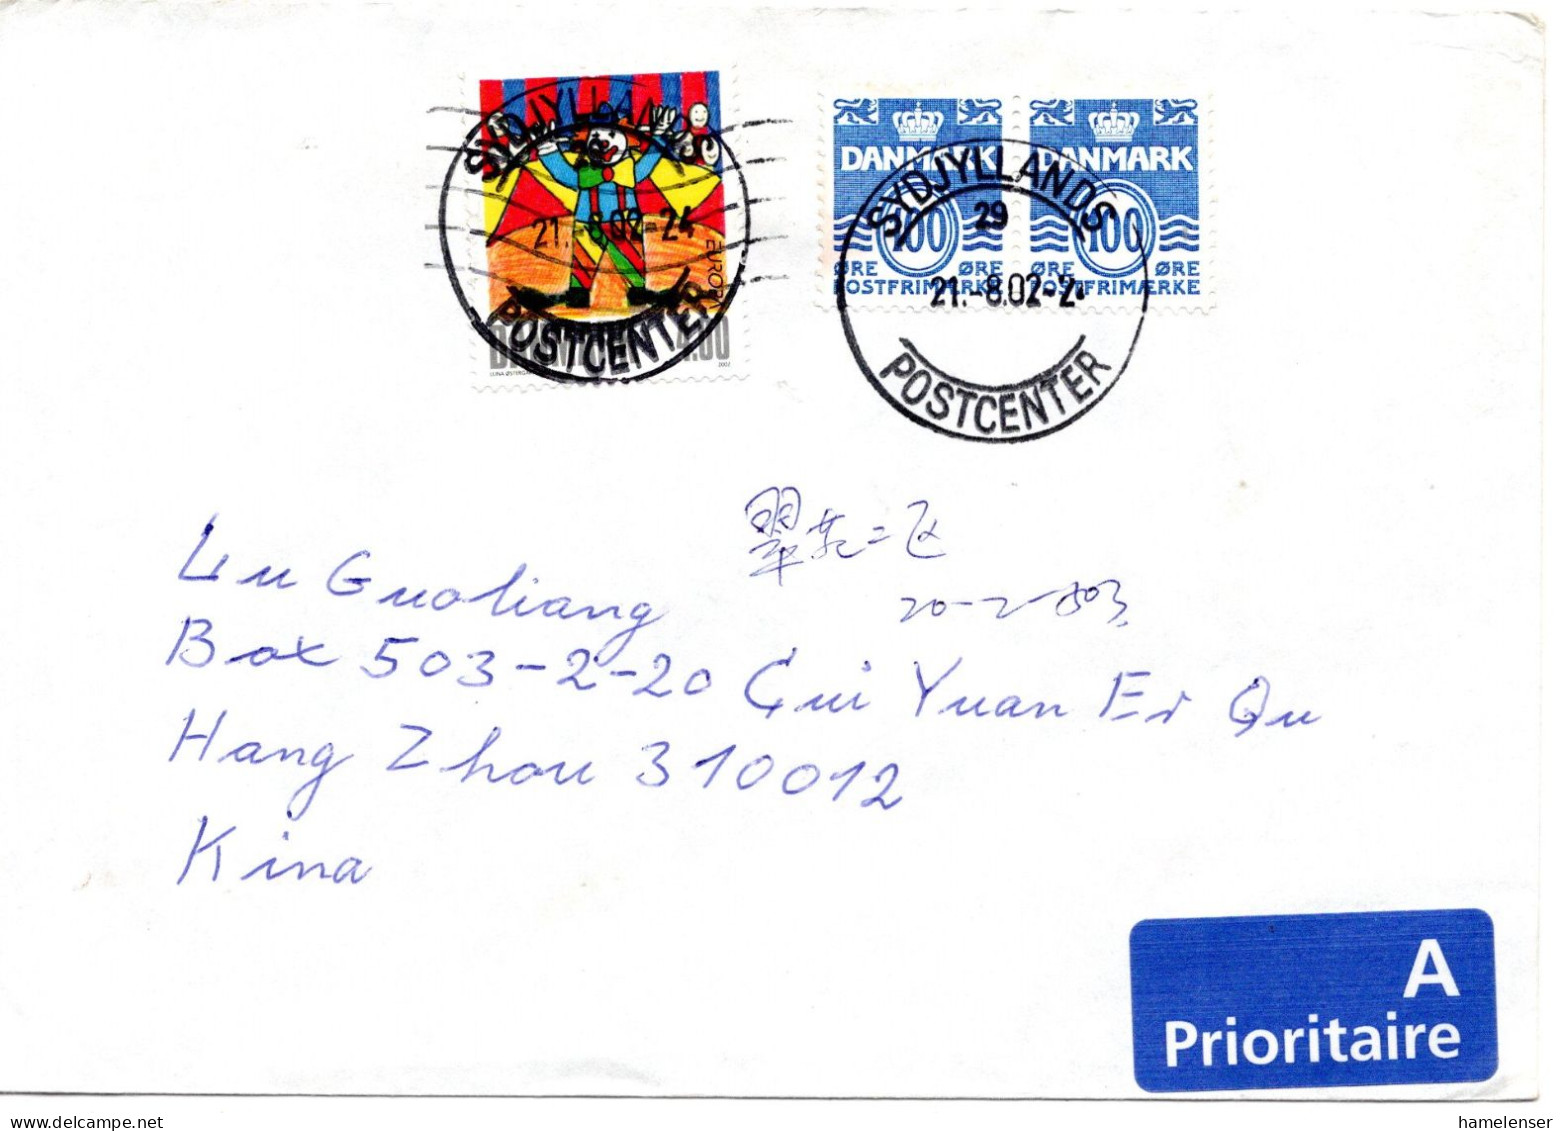 SYDJYLLANDS
29
21.-8.02-24
POSTCENTER
EUROPA
DANMARK 4.00
2002
DANMARK
100
ØRE ØRE
POSTFRIMÆRKE
DANMARK
100
ØRE ØRE
POSTFRIMÆRKE
SYDJYLLANDS
29
21.-8.02-2
POSTCENTER
翠苑二区
20-2-503
Lu Guoliang
Box 503-2-20 Cui Yuan Er Qu
Hang Zhou 310012
Kina
A
Prioritaire
hamelenser